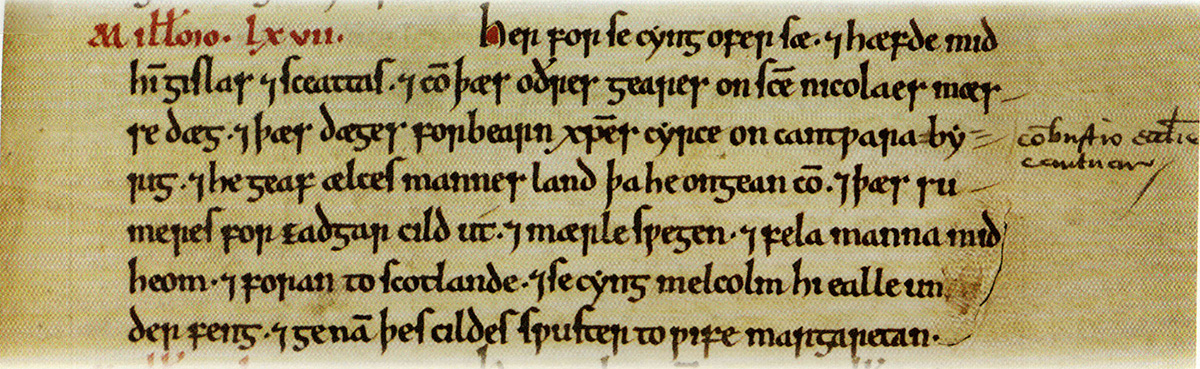 Millo̅io. lxvii. Her for se cyng ofer sæ. ⁊ hæfde mid
hī gislas ⁊ sceattas. ⁊ cō þæs oðres geares on sc̄e nicolaes mæs
se dæg. ⁊ þæs dæges forbearn xp̄es cyrce on cantƿara=by=
rig. ⁊ he geaf ælces mannes land þa he ongean cō. ⁊ þæs su
meres for Eadgar cild ut. ⁊ mærlesƿegen. ⁊ fela manna mid
heom. ⁊ foran to scotlande. ⁊ se cyng melcolm hi ealle un
der feng. ⁊ genā þes cildes sƿuster to ƿife margaretan.
cōbustio eccl̄ie
cantuar